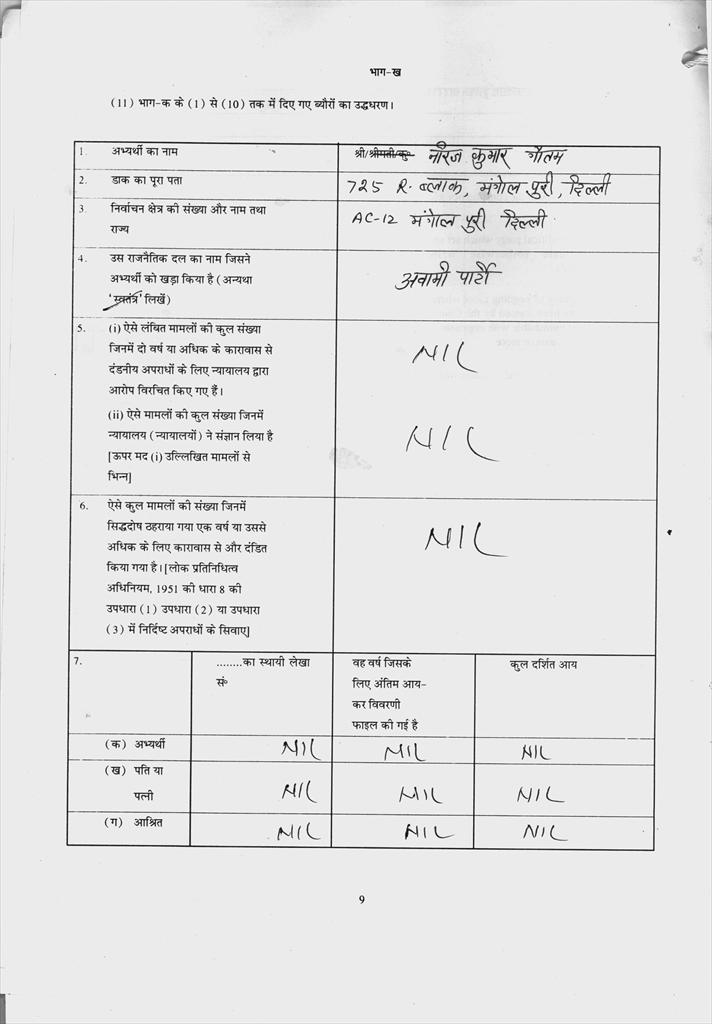 भाग-ख
(11) भाग-क के (1) से (10) तक में दिए गए ब्यौरों का उद्धधरण।
1. अभ्यर्थी का नाम श्री/श्रीमती/कु० नीरज कुमार गौतम
2. डाक का पूरा पता 725 R. ब्लाक, मंगोल पुरी, दिल्ली
3. निर्वाचन क्षेत्र की संख्या और नाम तथा AC-12 मंगोल पुरी दिल्ली
राज्य
4. उस राजनैतिक दल का नाम जिसने
अभ्यर्थी को खड़ा किया है (अन्यथा अवामी पार्टी
'स्वतंत्र' लिखें)
5. (i) ऐसे लंबित मामलों की कुल संख्या
जिनमें दो वर्ष या अधिक के कारावास से NIL
दंडनीय अपराधों के लिए न्यायालय द्वारा
आरोप विरचित किए गए हैं।
(ii) ऐसे मामलों की कुल संख्या जिनमें
न्यायालय (न्यायालयों) ने संज्ञान लिया है NIL
[ऊपर मद (i) उल्लिखित मामलों से
भिन्न]
6. ऐसे कुल मामलों की संख्या जिनमें
सिद्धदोष ठहराया गया एक वर्ष या उससे
अधिक के लिए कारावास से और दंडित NIL
किया गया है। [लोक प्रतिनिधित्व
अधिनियम, 1951 की धारा 8 की
उपधारा (1) उपधारा (2) या उपधारा
(3) में निर्दिष्ट अपराधों के सिवाए]
7. ........का स्थायी लेखा वह वर्ष जिसके कुल दर्शित आय
सं० लिए अंतिम आय-
कर विवरणी
फाइल की गई है
(क) अभ्यर्थी NIL NIL NIL
(ख) पति या
पत्नी NIL NIL NIL
(ग) आश्रित NIL NIL NIL
9